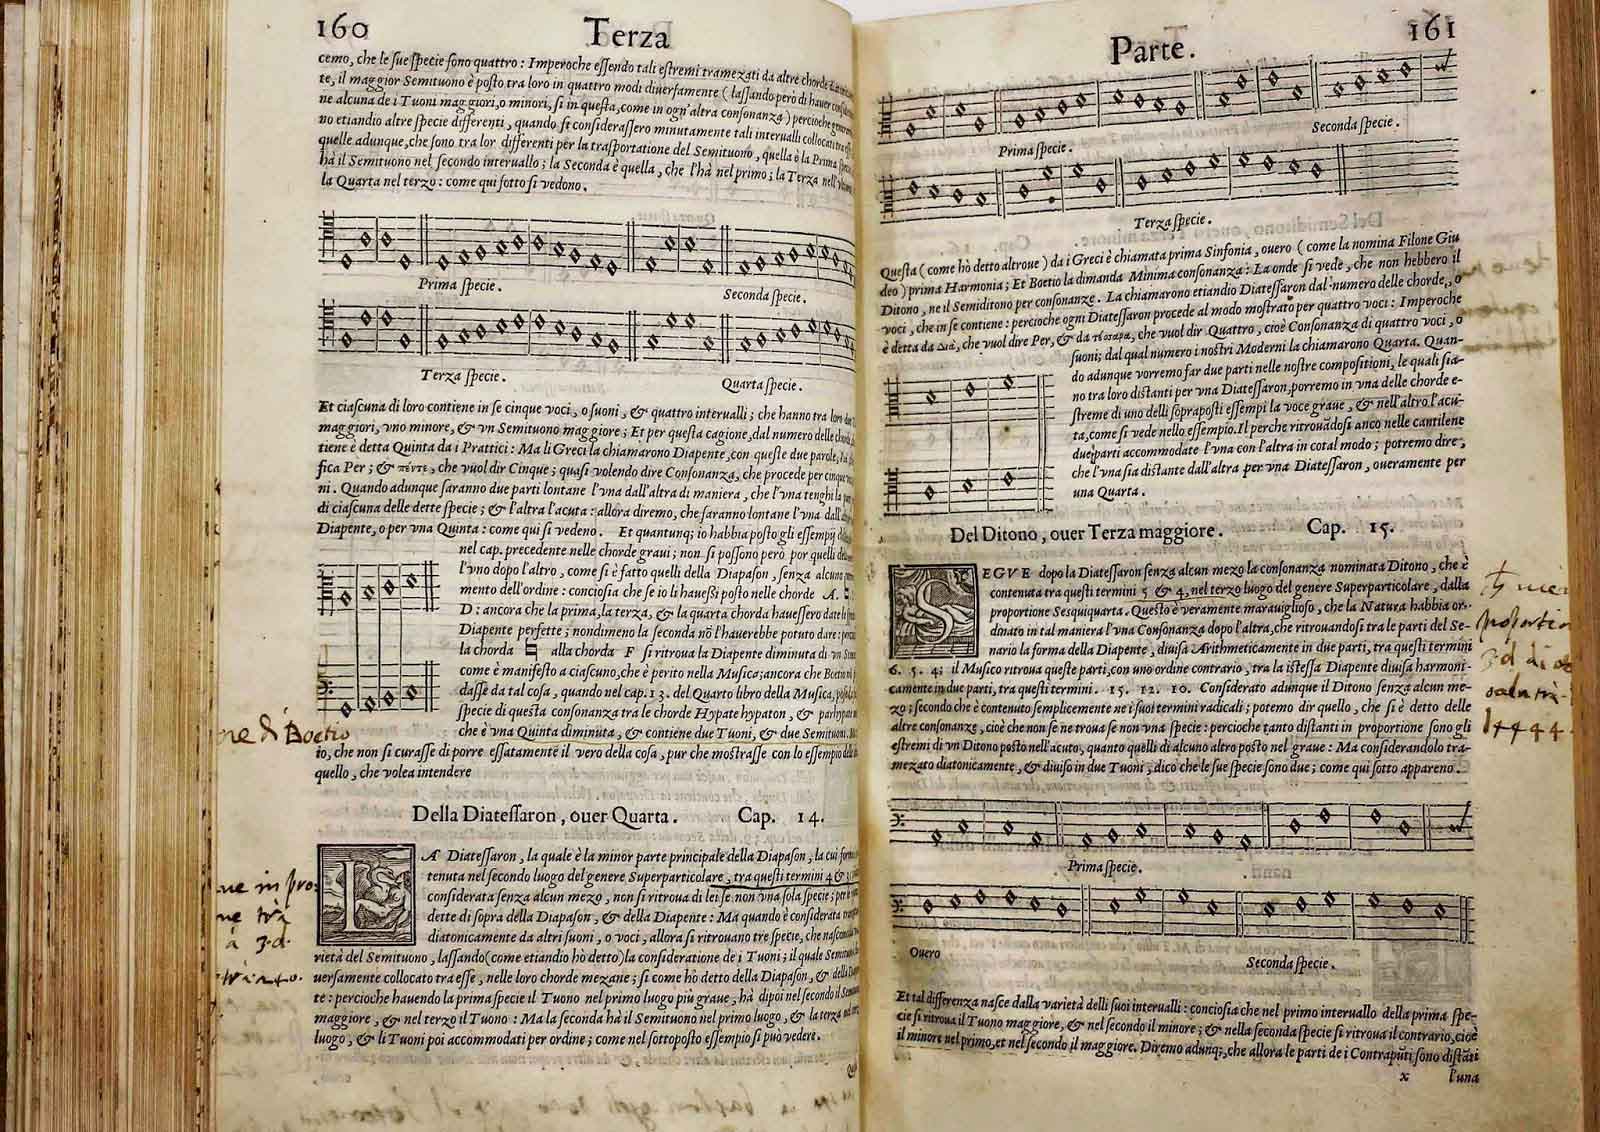 160
Terza
cemo, che le sue specie sono quattro : Imperoche essendo tali estremi tramezati da altre chorde
te, il maggior Semituono è posto tra loro in quattro modi diuersamente ( lassando però di hauer
ne alcuna de i Tuoni maggiori, o minori, si in questa, come in ogn'altra consonanza ) percioche
no etiandio altre specie differenti, quando si considerassero minutamente tali interualli collocati
quelle adunque, che sono tra lor differenti per la trasportatione del Semituono, quella è la Prima
hà il Semituono nel secondo interuallo; la Seconda è quella, che l'hà nel primo; la Terza
la Quarta nel terzo: come qui sotto si vedono.
Prima specie.
Seconda specie.
Terza specie.
Quarta specie.
Et ciascuna di loro contiene in se cinque voci, o suoni, & quattro interualli; che hanno tra loro due
maggiori, vno minore, & vn Semituono maggiore; Et per questa cagione, dal numero delle
tiene è detta Quinta da i Prattici: Ma li Greci la chiamarono Diapente, con queste due parole,
fica Per; & πέντε, che vuol dir Cinque; quasi volendo dire Consonanza, che procede per cinque
ni. Quando adunque saranno due parti lontane l'vna dall'altra di maniera, che l'vna tenghi la
di ciascuna delle dette specie; & l'altra l'acuta: allora diremo, che saranno lontane l'vna
Diapente, o per vna Quinta: come qui si vedeno. Et quantunq; io habbia posto gli essempij
nel cap. precedente nelle chorde graui; non si possono però por quelli
l'vno dopo l'altro, come si è fatto quelli della Diapason, senza alcuno
mento dell'ordine: conciosia che se io li hauessi posto nelle chorde A.
D: ancora che la prima, la terza, & la quarta chorda hauessero date
Diapente perfette; nondimeno la seconda nō l'hauerebbe potuto dare:
la chorda ♮ alla chorda F si ritroua la Diapente diminuta di vn
come è manifesto a ciascuno, che è perito nella Musica; ancora che Boetio
dasse da tal cosa, quando nel cap. 13. del Quarto libro della Musica,
specie di questa consonanza tra le chorde Hypate hypaton, &
che è vna Quinta diminuta, & contiene due Tuoni, & due Semituoni.
io, che non si curasse di porre essatamente il vero della cosa, pur che mostrasse con lo essempio
quello, che volea intendere
ne di Boetio
Della Diatessaron, ouer Quarta. Cap. 14.
LA Diatessaron, la quale è la minor parte principale della Diapason, la cui
tenuta nel secondo luogo del genere Superparticolare, tra questi termini 4 & 3
considerata senza alcun mezo, non si ritroua di lei se non vna sola specie;
dette di sopra della Diapason, & della Diapente: Ma quando è considerata
diatonicamente da altri suoni, o voci, allora si ritrouano tre specie, che nascono
rietà del Semituono, lassando (come etiandio hò detto) la consideratione de i Tuoni; il quale
uersamente collocato tra esse, nelle loro chorde mezane; si come hò detto della Diapason, & della
te: percioche hauendo la prima specie il Tuono nel primo luogo più graue, hà dipoi nel secondo il
maggiore, & nel terzo il Tuono: Ma la seconda hà il Semituono nel primo luogo, & la terza
luogo, & li Tuoni poi accommodati per ordine; come nel sottoposto essempio si può vedere.
ne in pro:
ne trà
à 3.d.
Parte.
161
Prima specie.
Seconda specie.
Terza specie.
Questa ( come hò detto altroue ) da i Greci è chiamata prima Sinfonia, ouero ( come la nomina Filone Giu
deo ) prima Harmonia; Et Boetio la dimanda Minima consonanza: La onde si vede, che non hebbero il
Ditono, ne il Semiditono per consonanze. La chiamarono etiandio Diatessaron dal numero delle chorde, o
voci, che in se contiene: percioche ogni Diatessaron procede al modo mostrato per quattro voci: Imperoche
è detta da Διὰ, che vuol dire Per, & da τέσσαρα, che vuol dir Quattro, cioè Consonanza di quattro voci, o
suoni; dal qual numero i nostri Moderni la chiamarono Quarta. Quan-
do adunque vorremo far due parti nelle nostre compositioni, le quali sia-
no tra loro distanti per vna Diatessaron, porremo in vna delle chorde e-
streme di uno delli sopraposti essempi la voce graue, & nell'altro l'acu-
ta, come si vede nello essempio. Il perche ritrouādosi anco nelle cantilene
due parti accommodate l'vna con l'altra in cotal modo; potremo dire,
che l'vna sia distante dall'altra per vna Diatessaron, oueramente per
una Quarta.
Del Ditono, ouer Terza maggiore. Cap. 15.
SEGVE dopo la Diatessaron senza alcun mezo la consonanza nominata Ditono, che è
contenuta tra questi termini 5 & 4, nel terzo luogo del genere Superparticolare, dalla
proportione Sesquiquarta. Questo è veramente marauiglioso, che la Natura habbia or-
dinato in tal maniera l'vna Consonanza dopo l'altra, che ritrouandosi tra le parti del Se-
nario la forma della Diapente, diuisa Arithmeticamente in due parti, tra questi termini
6. 5. 4; il Musico ritroua queste parti, con uno ordine contrario, tra la istessa Diapente diuisa harmoni-
camente in due parti, tra questi termini. 15. 12. 10. Considerato adunque il Ditono senza alcun me-
zo; secondo che è contenuto semplicemente ne i suoi termini radicali; potemo dir quello, che si è detto delle
altre consonanze, cioè che non se ne troua se non vna specie: percioche tanto distanti in proportione sono gli
estremi di vn Ditono posto nell'acuto, quanto quelli di alcuno altro posto nel graue: Ma considerandolo tra-
mezato diatonicamente, & diuiso in due Tuoni, dico che le sue specie sono due; come qui sotto appareno.
Prima specie.
Ouero
Seconda specie.
Et tal differenza nasce dalla varietà delli suoi interualli: conciosia che nel primo interuallo della prima spe-
cie si ritroua il Tuono maggiore, & nel secondo il minore; & nella seconda specie si ritroua il contrario, cioè
il minore nel primo, et nel secondo il maggiore. Diremo adunq;, che allora le parti de i Contrapūti sono distāti
x l'una